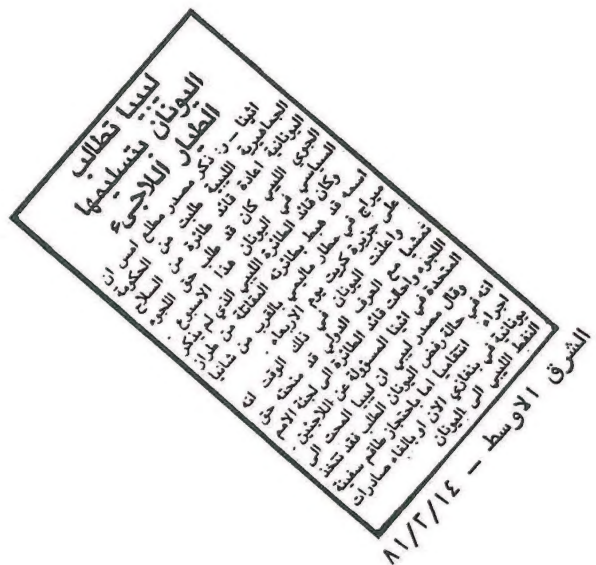 ليبيا تطالب
اليونان بتسليمها
الطيار اللاجىء
اثينا - ذكر مصدر مطلع امس ان
الجماهيرية الليبية طلبت من الحكومة
اليونانية اعادة قائد طائرة من السلاح
الجوي الليبي كان قد طلب حق اللجوء
السياسي في اليونان هذا الاسبوع.
وكان قائد الطائرة الليبي الذي لم يذكر
اسمه قد هبط بطائرته المقاتلة من طراز
ميراج في مطار ماليمي بالقرب من شانيا
على جزيرة كريت يوم الاربعاء.
واعلنت اليونان في ذلك الوقت انه
تمشيا مع العرف الدولي قد منحته حق
اللجوء واحالت قائد الطائرة الى لجنة الامم
المتحدة في اثينا المسؤولة عن اللاجئين.
وقال مصدر ليبي ان ليبيا المحت الى
انه في حالة رفض اليونان الطلب فقد تتخذ
اجراء انتقاميا اما باحتجاز طاقم سفينة
يونانية في بنغازي الان او بالغاء صادرات
النفط الليبي الى اليونان
الشرق الاوسط – ٨١/٢/١٤